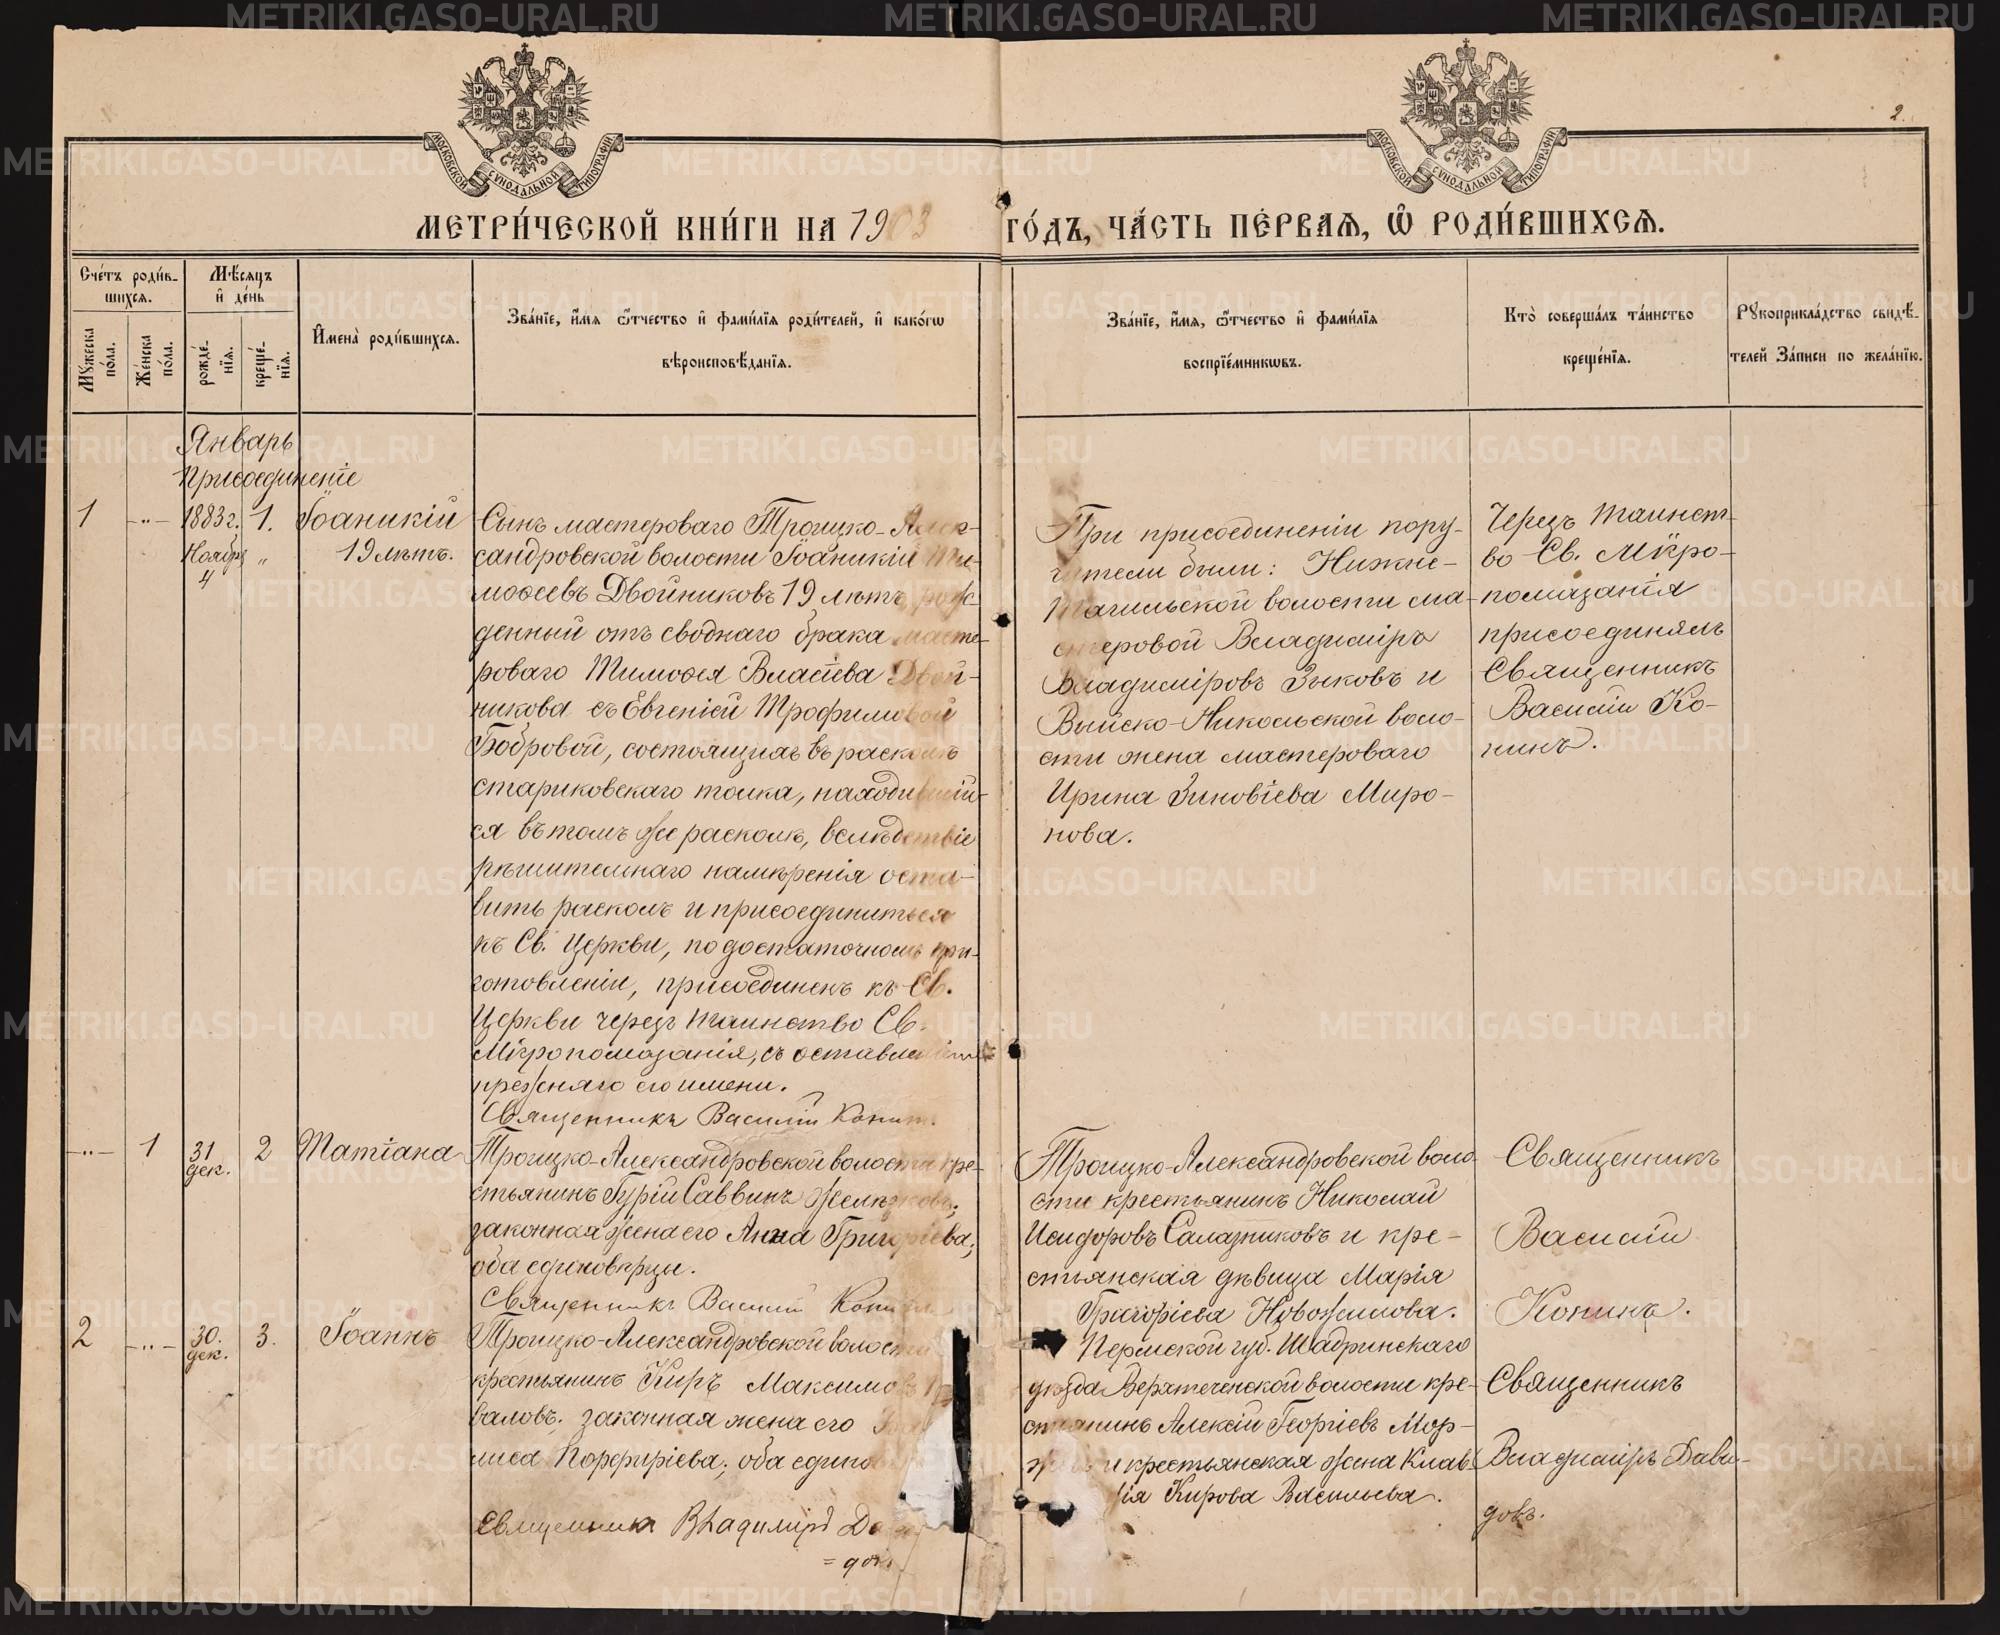 2.
МОСКОВСКОЙ СУНОДАЛЬНОЙ ТИПОГРАФІИ
МОСКОВСКОЙ СУНОДАЛЬНОЙ ТИПОГРАФІИ
МЕТРИ́ЧЕСКОЙ КНИ́ГИ НА 1903 ГО́ДЪ, ЧА́СТЬ ПЕ́РВАѦ, Ѽ РОДИ́ВШИХСѦ.
Сче́тъ роди́в-
шихсѧ.
Мꙋжеска
по́ла.
Же́нска
по́ла.
Мѣ́сѧцъ
и҆ де́нь
рожде́-
нїѧ.
креще́-
нїѧ.
И҆мена̀ роди́вшихсѧ.
Зва́нїе, и҆́мѧ ѻ҆́тчество и҆ фами́лїѧ роди́телей, и҆ како́гѡ
вѣроисповѣ́данїѧ.
Зва́нїе, и҆́мѧ, ѻ҆́тчество и҆ фами́лїѧ
воспрїе́мникѡвъ.
Кто̀ соверша́лъ та́инство
креще́нїѧ.
Рꙋкоприкла́дство свидѣ́-
телей За́писи по жела́нїю.
Январь
Присоединеніе
1 -"- 1883 г. 1. Іоанникій
Ноябр. " 19 лѣтъ.
4
Сынъ мастероваго Троицко-Алек-
сандровской волости Іоаникій Ти-
моѳеевъ Двойниковъ 19 лѣтъ, рож-
денный отъ сводного брака масте-
роваго Тимоѳея Власіева Двой-
никова съ Евгеніей Трофимовой
Бобровой, состоящихъ въ расколѣ
стариковскаго толка, находившій-
ся въ томъ же расколѣ, вслѣдствіе
рѣшительнаго намѣренія оста-
вить расколъ и присоединиться
къ Св. Церкви, по достаточномъ при-
готовленіи, присоединенъ къ Св.
Церкви чрезъ таинство Св.
Мѵропомазанія, съ оставленіемъ
прежняго его имени.
Священникъ Василій Конинъ.
При присоединеніи пору-
чители были: Нижне-
Тагильской волости ма-
стеровой Владиміръ
Владиміровъ Зыковъ и
Выйско-Никольской воло-
сти жена мастероваго
Ирина Зиновіева Миро-
нова.
Черезъ таинст-
во Св. Мѵро-
помазанія
присоединялъ
Священникъ
Василій Ко-
нинъ.
-"- 1 31 дек. 2 Татіана
Троицко-Александровской волости кре-
стьянинъ Гурій Саввинъ Желѣзковъ;
законная жена его Анна Григоріева;
оба единовѣрцы.
Священникъ Василій Конинъ
Троицко-Александровской воло-
сти крестьянинъ Николай
Исидоровъ Салазниковъ и кре-
стьянская дѣвица Марія
Григоріева Новожилова.
Священникъ
Василій
Конинъ.
2 -"- 30. дек. 3. Іоаннъ
Троицко-Александровской волости
крестьянинъ Киръ Максимовъ
валовъ; законная жена его
Порфиріева; оба единов
Священникъ Владиміръ Да
=довъ
Пермской губ. Шадринскаго
уѣзда Верхтеченской волости кре-
стьянинъ Алексій Георгіевъ Мор-
и крестьянская жена Клав-
ія Кирова Васильева.
Священникъ
Владиміръ Давы-
довъ.
METRIKI.GASO-URAL.RU